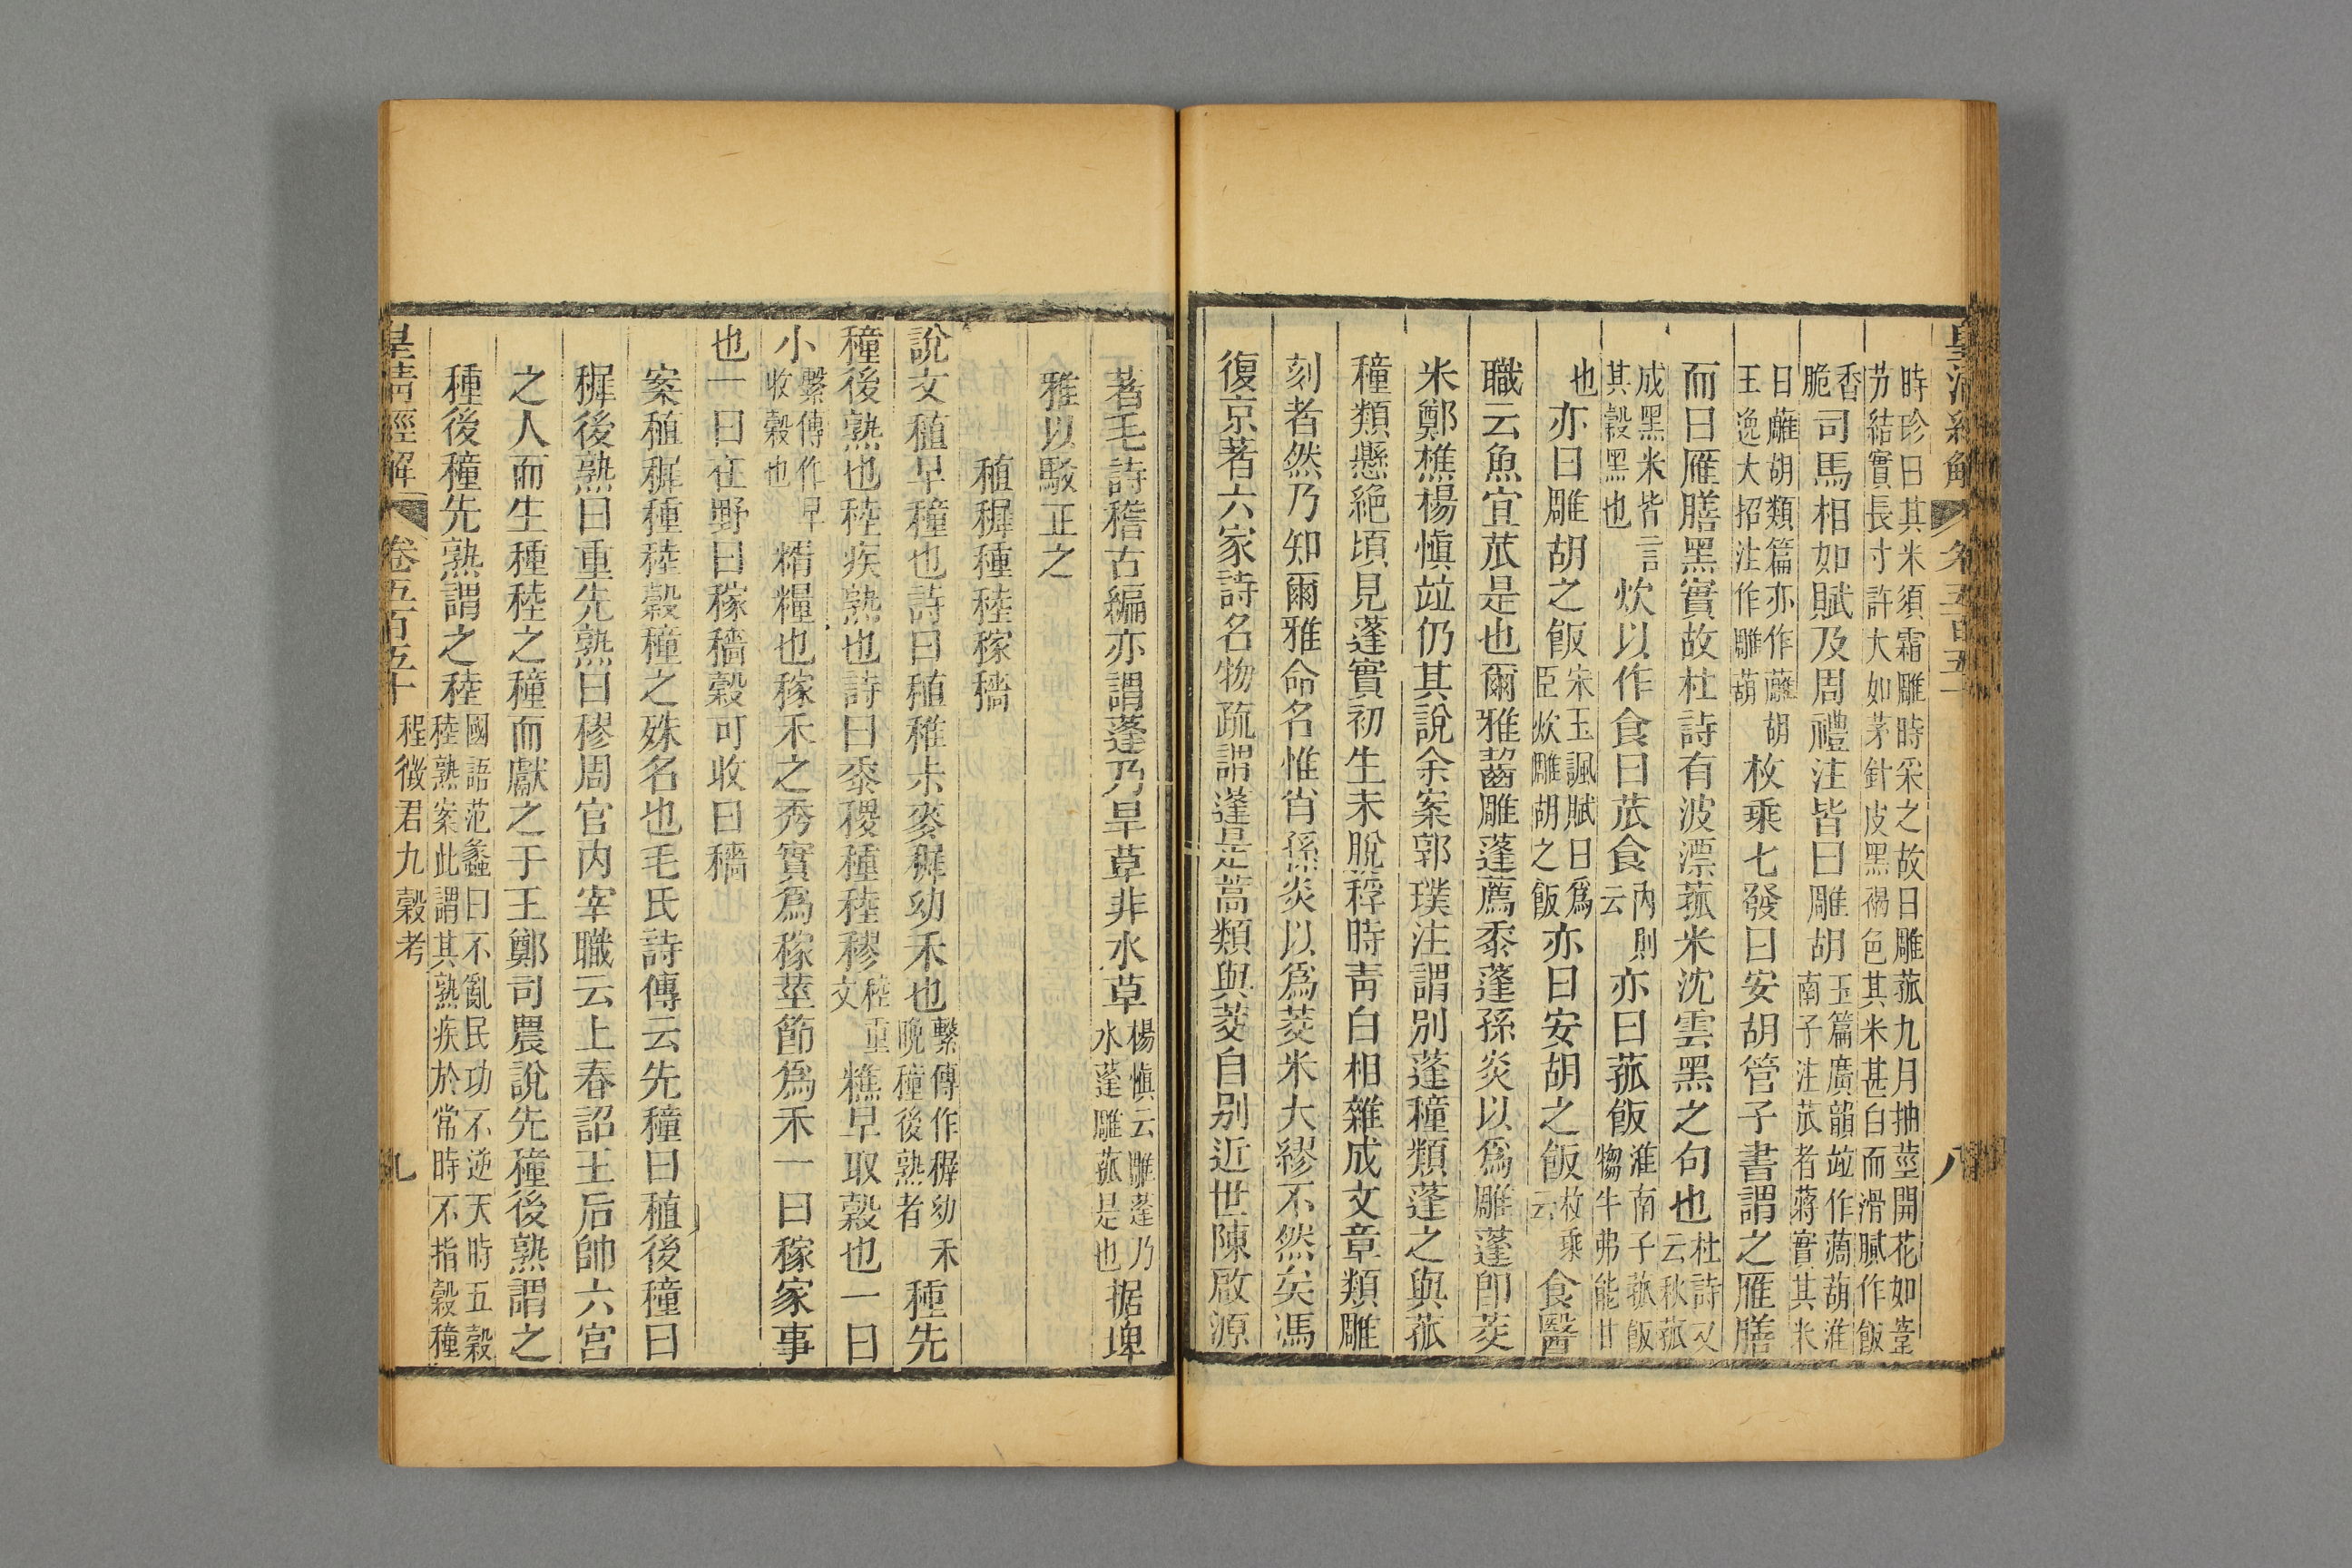 皇清經解 卷五百五十 八
時珍曰其米須霜雕時采之故曰雕菰九月抽莖開花如葦
芀結實長寸許大如茅針皮黑褐色其米甚白而滑膩作飯
香脆司馬相如賦及周禮注皆曰雕胡玉篇廣韻竝作䕕葫淮南子注苽者蔣實其米
曰蘸胡類篇亦作蘸胡王逸大招注作雕葫枚乘七發曰安胡管子書謂之雁膳
而曰雁膳黑實故杜詩有波漂菰米沈雲黑之句也杜詩又云秋菰
成黑米皆言其穀黑也炊以作食曰苽食內則云亦曰菰飯淮南子菰飯犓牛弗能甘
也亦曰雕胡之飯宋玉諷賦曰爲臣炊雕胡之飯亦曰安胡之飯枚乘云食醫
職云魚宜苽是也爾雅齧雕蓬薦黍蓬孫炎以爲雕蓬卽茭
米鄭樵楊愼竝仍其說余案郭璞注謂別蓬穜類蓬之與菰
穜類懸絶頃見蓬實初生未脫稃時靑白相雜成文章類雕
刻者然乃知爾雅命名惟肖孫炎以爲茭米大繆不然矣馮
復京著六家詩名物疏謂蓬是蒿類與茭自别近世陳啟源
著毛詩稽古編亦謂蓬乃旱草非水草楊愼云雕蓬乃水蓬雕菰是也据埤
雅以駁正之
稙稺種稑稼穡
說文稙早穜也詩曰稙稚尗麥稺幼禾也繫傳作稺幼禾晩穜後熟者種先
穜後熟也稑疾孰也詩曰黍稷種稑穋稑重文穛早取穀也一曰
小繫傳作早收穀也糈糧也稼禾之秀實爲稼莖節爲禾一曰稼家事
也一曰在野曰稼穡穀可收曰穡
案稙稺種稑穀穜之殊名也毛氏詩傳云先穜曰稙後穜曰
稺後熟曰重先熟曰穋周官內宰職云上春詔王后帥六宫
之人而生種稑之穜而獻之于王鄭司農說先穜後熟謂之
種後穜先熟謂之稑國語范蠡曰不亂民功不逆天時五穀稑熟案此謂其熟疾於常時不指穀穜
皇清經解 卷五百五十 程徵君九穀考 九